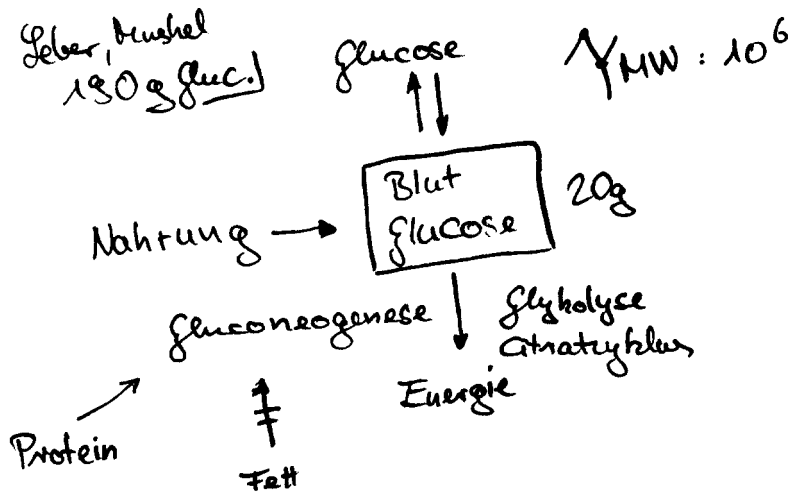 Leber, Muskel
190g Gluc.
Glucose
MW : 10⁶
Blut
Glucose
20g
Nahrung
Gluconeogenese
Glykolyse
Citratzyklus
Energie
Protein
Fett